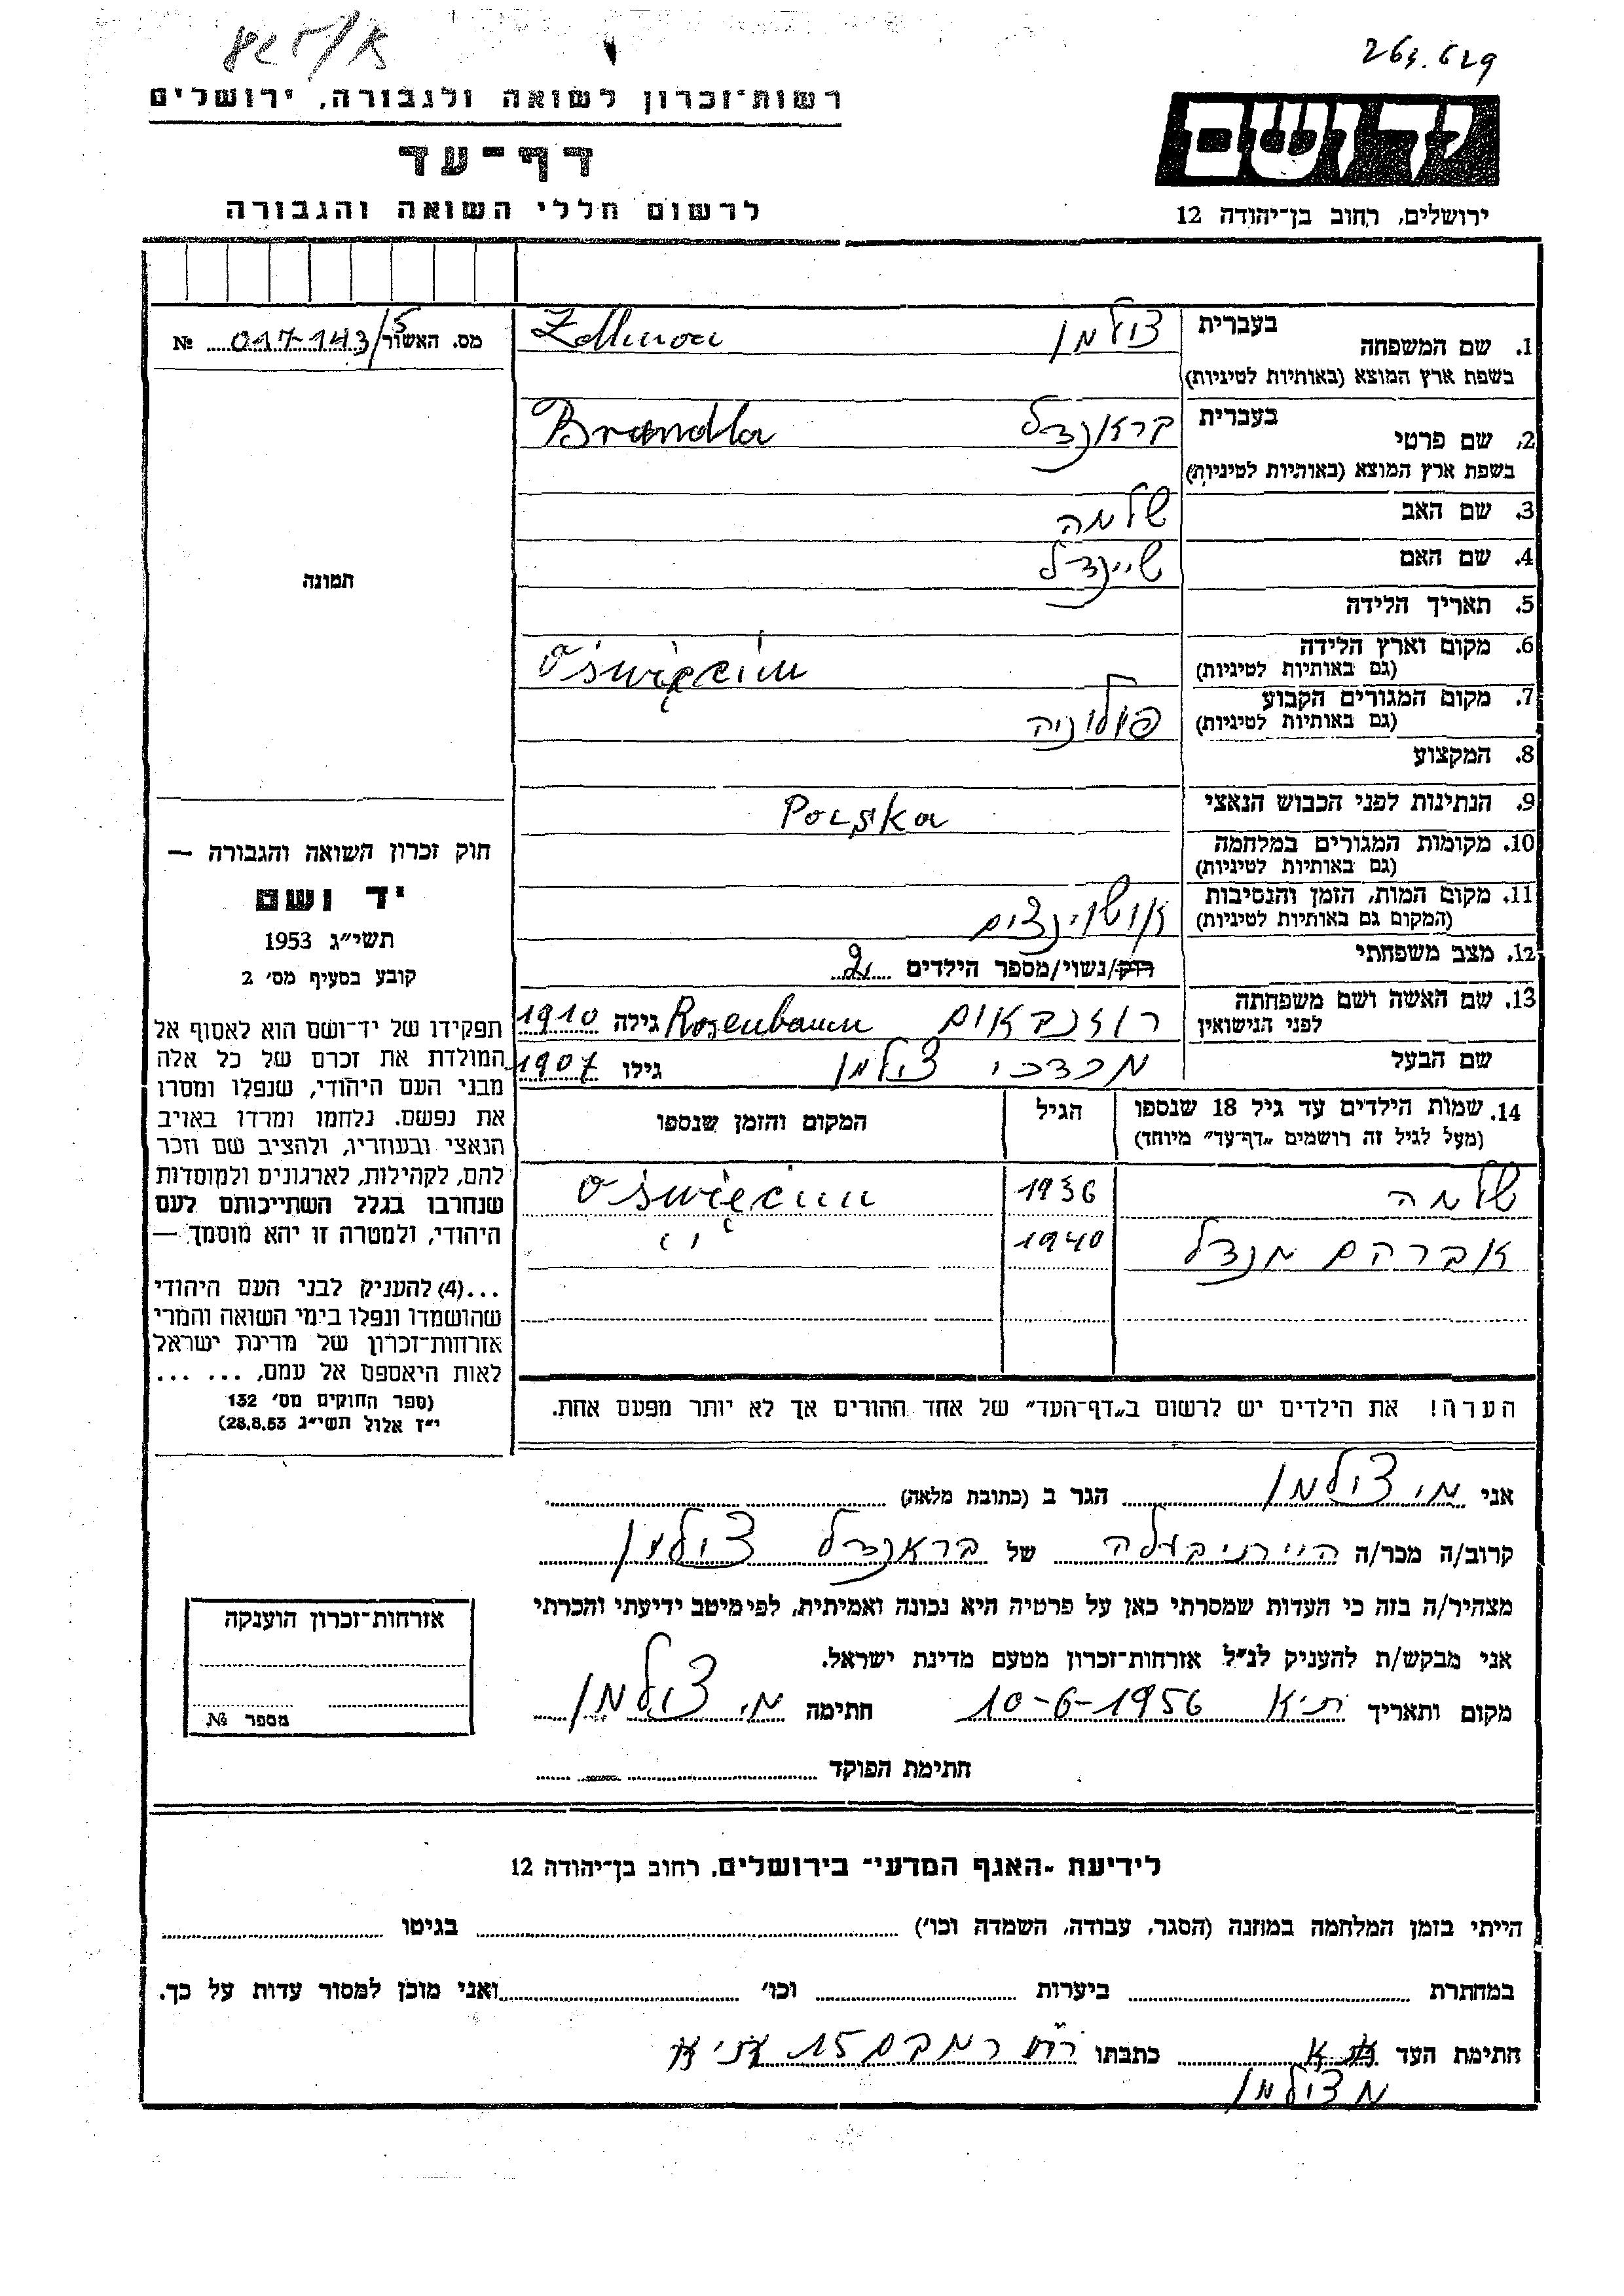 263.629
רשות־זכרון לשואה ולגבורה, ירושלים
דף־עד
לרשום חללי השואה והגבורה
ידושם
ירושלים, רחוב בן־יהודה 12
מס. האשור 017-143/5 №
1. שם המשפחה בעברית צולמן
בשפת ארץ המוצא (באותיות לטיניות)
2. שם פרטי בעברית בראנדל Brandla
בשפת ארץ המוצא (באותיות לטיניות)
3. שם האב שלמה
4. שם האם שיינדל
תמונה
5. תאריך הלידה
6. מקום וארץ הלידה Oświęcim
(גם באותיות לטיניות)
7. מקום המגורים הקבוע פולוניה
(גם באותיות לטיניות)
8. המקצוע
9. הנתינות לפני הכבוש הנאצי Polska
10. מקומות המגורים במלחמה
(גם באותיות לטיניות)
11. מקום המות, הזמן והנסיבות אושוינצים
(המקום גם באותיות לטיניות)
12. מצב משפחתי רוק/נשוי/מספר הילדים 2
13. שם האשה ושם משפחתה רוזנבאום Rosenbaum גילה 1910
לפני הנישואין
שם הבעל מרדכי צולמן גילו 1907
14. שמות הילדים עד גיל 18 שנספו הגיל המקום והזמן שנספו
(מעל לגיל זה רושמים "דף־עד" מיוחד)
שלמה 1936 Oświęcim
אברהם מנדל 1940 " "
הערה! את הילדים יש לרשום ב"דף־העד" של אחד ההורים אך לא יותר מפעם אחת.
חוק זכרון השואה והגבורה —
יד ושם
תשי"ג 1953
קובע בסעיף מס' 2
תפקידו של יד־ושם הוא לאסוף אל
המולדת את זכרם של כל אלה
מבני העם היהודי, שנפלו ומסרו
את נפשם. נלחמו ומרדו באויב
הנאצי ובעוזריו, ולהציב שם וזכר
להם, לקהילות, לארגונים ולמוסדות
שנחרבו בגלל השתייכותם לעם
היהודי, ולמטרה זו יהא מוסמך —
...(4) להעניק לבני העם היהודי
שהושמדו ונפלו בימי השואה והמרי
אזרחות־זכרון של מדינת ישראל
לאות היאספם אל עמם, ... ...
(ספר החוקים מס' 132
י"ז אלול תשי"ג 28.8.53)
אני מ. צולמן הגר ב (כתובת מלאה)
קרוב/ה מכר/ה הייתי בעלה של בראנדל צולמן
מצהיר/ה בזה כי העדות שמסרתי כאן על פרטיה היא נכונה ואמיתית, לפי מיטב ידיעתי והכרתי
אני מבקש/ת להעניק לנ"ל אזרחות־זכרון מטעם מדינת ישראל.
מקום ותאריך ת"א 10-6-1956 חתימה מ. צולמן
חתימת הפוקד
אזרחות־זכרון הוענקה
מספר №
לידיעת "האגף המדעי" בירושלים, רחוב בן־יהודה 12
הייתי בזמן המלחמה במחנה (הסגר, עבודה, השמדה וכו') בגיטו
במחתרת ביערות וכו' ואני מוכן למסור עדות על כך.
חתימת העד כתבתו רח' רמבם 15 ת"א
מ צולמן